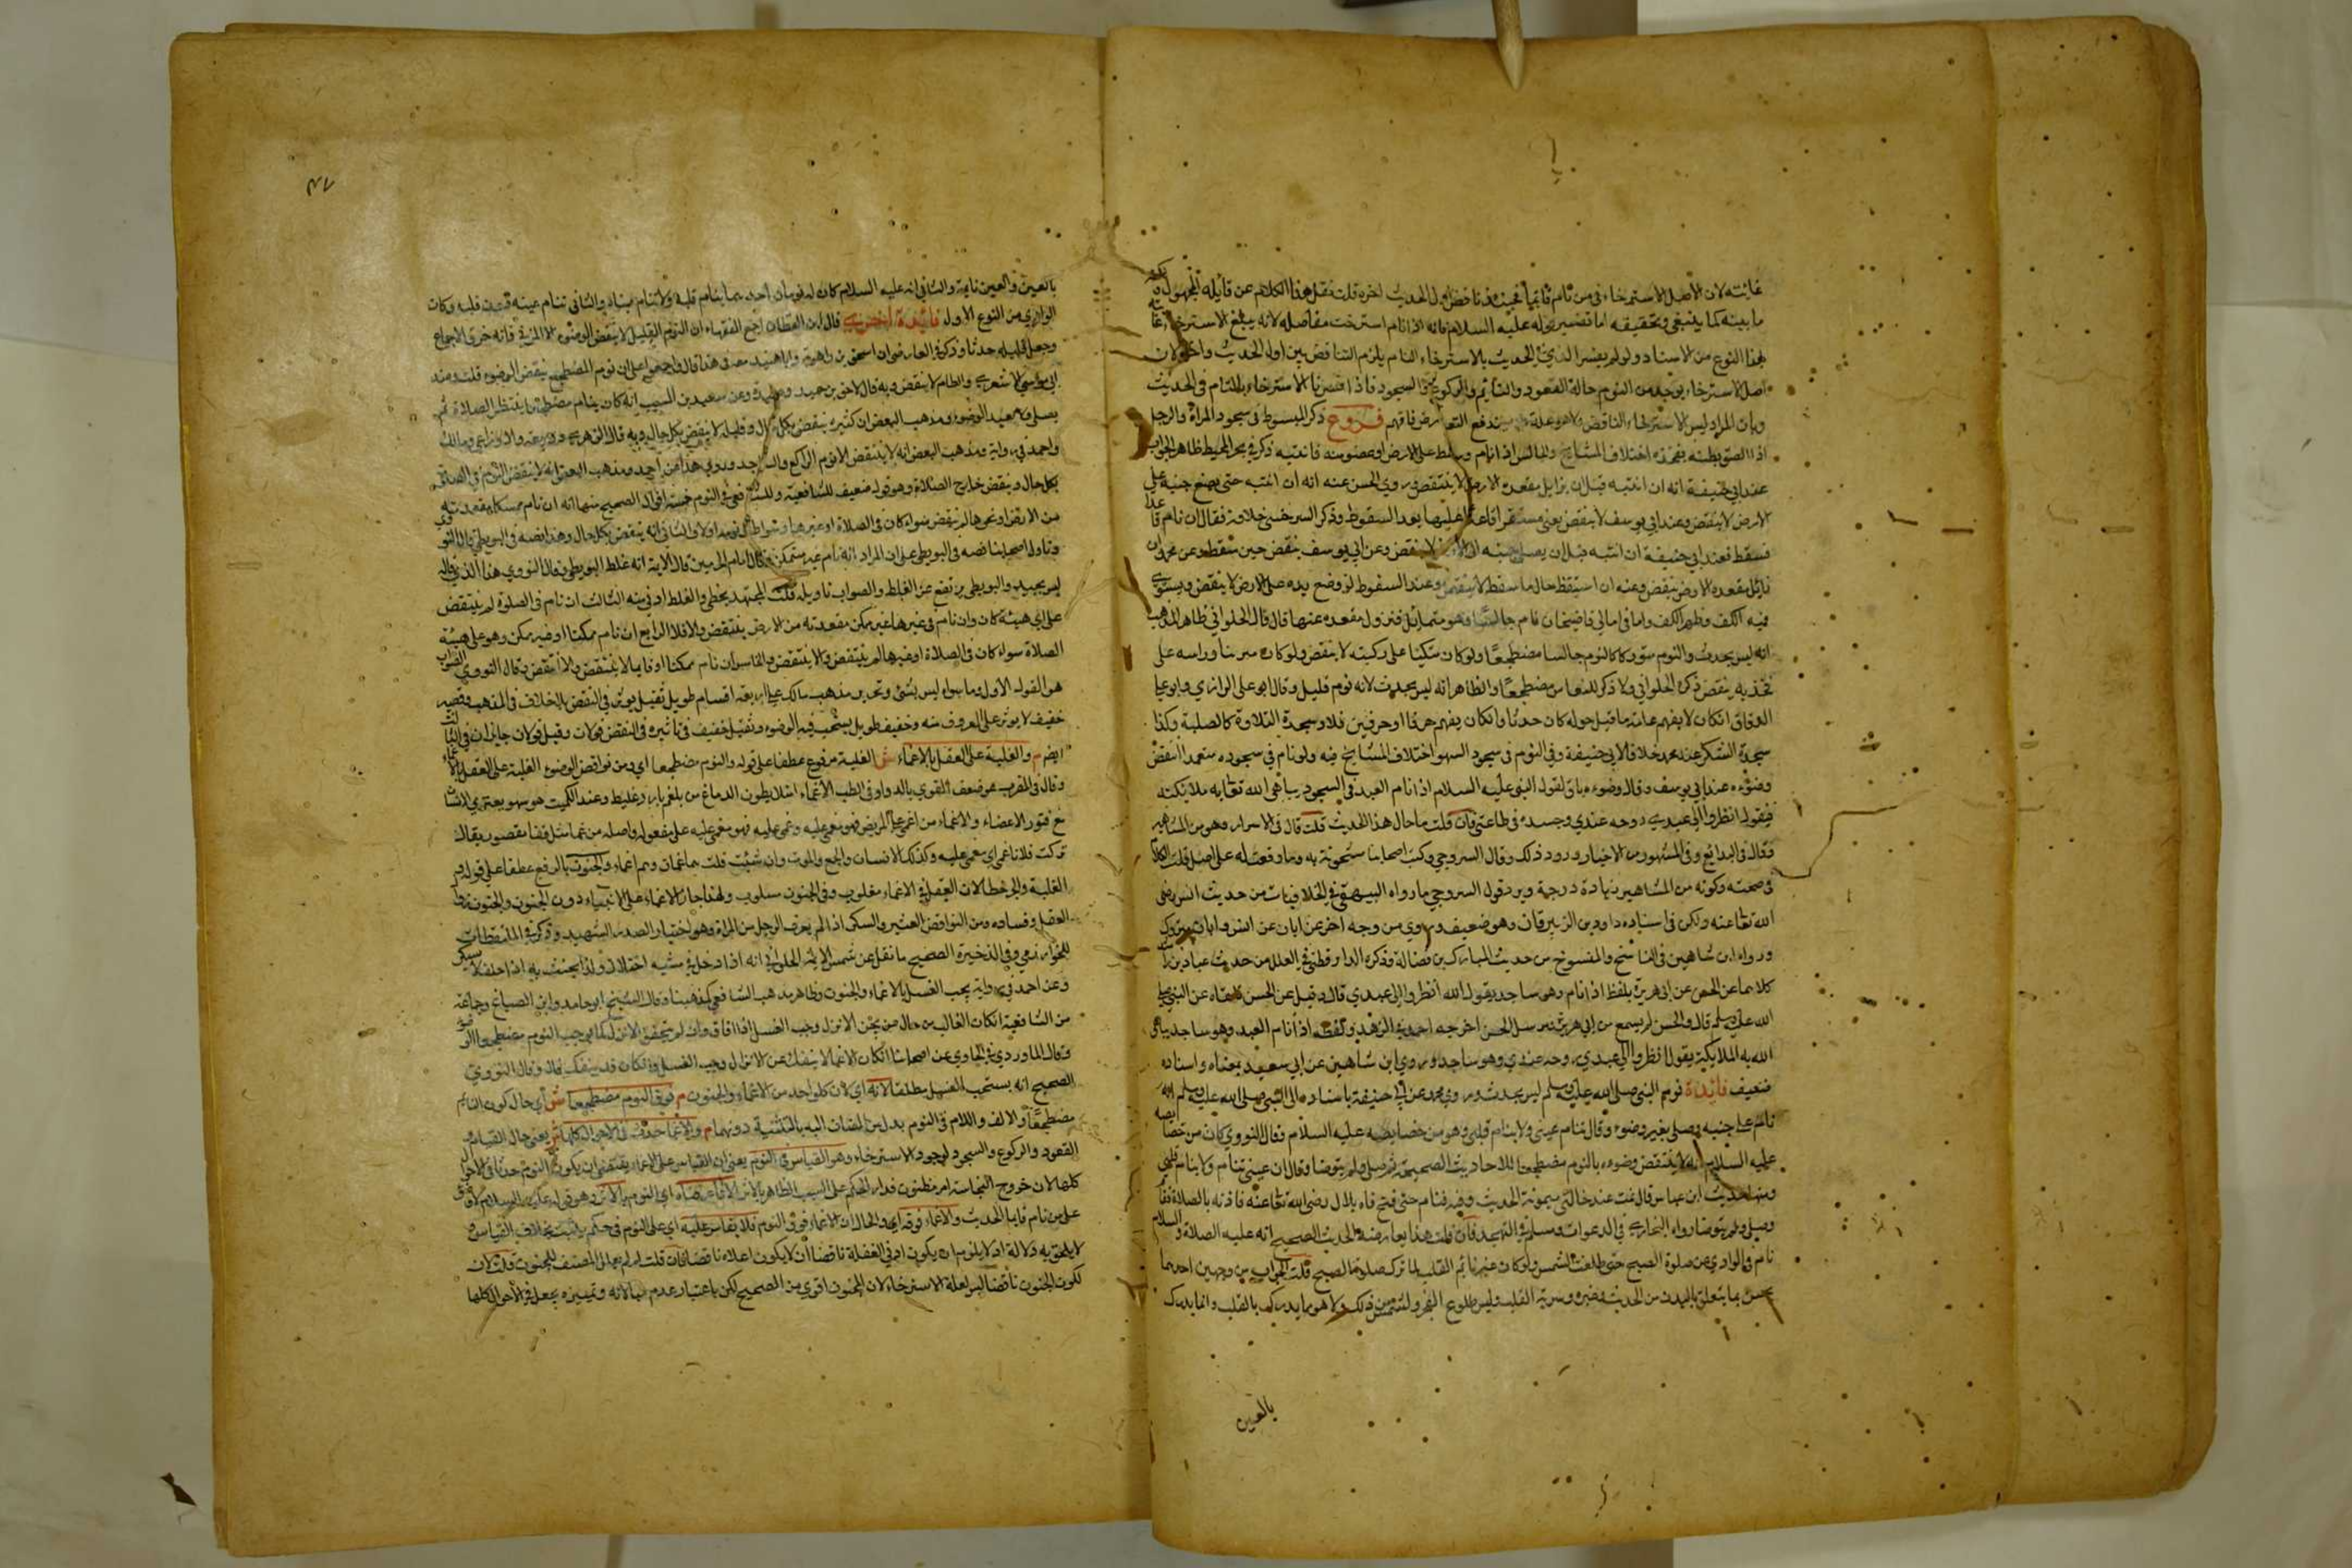 غايته لان الأصل الاسترخاء فى من نام قائما فحينئذ ناقض اول الحديث اخره قلت نقل هذا الكلام عن قايله
ما بينه كما ينبغي وتحقيقه اما تفسير قوله عليه السلام فانه اذا نام استرخت مفاصله لانه يبلغ الاسترخاء
بهذا النوع من الاسناد ولو لم يفسر الذي في الحديث بالاسترخاء التام يلزم التناقض بين اول الحديث واخره لان
اصل الاسترخاء يوجد من النوم حالة القعود والقيام والركوع والسجود فاذا فسرنا الاسترخاء بالتام فى الحديث
وبان المراد ليس الاسترخاء الناقض يندفع التعارض فافهم فروع ذكر المبسوط فى سجود المراة والرجل
اذا الصق بطنه بفخذه اختلاف المشايخ والجالس اذا نام وسقط على الارض او عضو منه فانتبه ذكر في المحيط ظاهر الجواب
عند ابي حنيفة انه ان انتبه قبل ان يزايل مقعده الارض لا ينتقض وروي الحسن عنه انه ان انتبه حتى يضع جنبه على
الارض لا ينتقض وعند ابي يوسف لا ينقض يعنى مستقرا قاعدا عليها بعد السقوط وذكر السرخسى خلافه فقال ان نام قاعدا
فسقط فعند ابي حنيفة ان انتبه قبل ان يصل جنبه الى الارض لا ينتقض وعن ابي يوسف ينقض حين سقط وعن محمد ان
زايل مقعده الارض ينقض وعنه ان استيقظ حال ما سقط لا ينتقض وعند السقوط لو وضع يده على الارض لا ينقض ويستوي
فيه الكف وظهر الكف وما فى امالي قاضيخان نام جالسا وهو متمايل فتزول مقعده عنها قال قال الحلواني ظاهر المذهب
انه ليس بحدث والنوم متوركا كالنوم جالسا مضطجعا ولو كان متكيا على ركبته لا ينقض ولو كان متربعا وراسه على
فخذيه ينقض ذكره الحلواني ولا ذكر للنعاس مضطجعا والظاهر انه ليس بحدث لانه نوم قليل وقال ابو على الرازي وابو علي
الدقاق ان كان لا يفهم عامة ما قيل حوله كان حدثا وان كان يفهم حرفا او حرفين فلا وسجدة التلاوة كالصلبية وكذا
سجدة الشكر عند محمد خلافا لابي حنيفة وفي النوم فى سجود السهو اختلاف المشايخ فيه ولو نام في سجوده متعمدا انتقض
وضوءه عند ابي يوسف وقال وضوءه باق لقول النبي عليه السلام اذا نام العبد فى السجود يباهى الله تعالى به ملايكته
فيقول انظروا الى عبدي روحه عندي وجسده في طاعتى فان قلت ما حال هذا الحديث قلت قال فى الاسرار وهو من المشاهير
وقال فى البدائع وفى المشهور من الاخبار ورود ذلك وقال السروجي وكتب اصحابنا مشحونة به وما وقعت له على اصل قلت الكلام
فى صحته وكونه من المشاهير زيادة درجة ويرد قول السروجي ما رواه البيهقي في الخلافيات من حديث انس رضى
الله تعالى عنه ولكن فى اسناده داود بن الزبرقان وهو ضعيف وروي من وجه اخر عن ابان عن انس وابان متروك
ورواه ابن شاهين فى الناسخ والمنسوخ من حديث المبارك بن فضالة وذكره الدارقطني في العلل من حديث عباد بن راشد
كلاهما عن الحسن عن ابي هريرة بلفظ اذا نام وهو ساجد يقول الله انظروا الى عبدي قال وقيل عن الحسن بلغناه عن النبي صلى
الله عليه وسلم قال والحسن لم يسمع من ابي هريرة ومرسل الحسن اخرجه احمد في الزهد ولفظه اذا نام العبد وهو ساجد يباهى
الله به الملايكة يقول انظروا الى عبدي روحه عندي وهو ساجد وروي ابن شاهين عن ابي سعيد بمعناه واسناده
ضعيف فائدة نوم النبي صلى الله عليه وسلم ليس بحدث وروي محمد عن ابي حنيفة باسناده الى النبي صلى الله عليه وسلم انه
نام على جنبه وصلى بغير وضوء وقال تنام عينى ولا ينام قلبى وهو من خصايصه عليه السلام فقال النووي كان من خصايصه
عليه السلام انه لا ينتقض وضوءه بالنوم مضطجعا للاحاديث الصحيحة ثم صلى ولم يتوضا وقال ان عينى تنام ولا ينام قلبى
ومنها حديث ابن عباس قال نمت عند خالتى ميمونة الحديث وفيه فنام حتى نفخ فاه بلال رضى الله تعالى عنه فاذنه بالصلاة فقام
وصلى ولم يتوضا رواه البخاري في الدعوات ومسلم في التهجد فان قلت هذا يعارضه الحديث الصحيح انه عليه الصلاة والسلام
نام فى الوادي عن صلوة الصبح حتى طلعت الشمس ولو كان غير نايم القلب لما ترك صلوة الصبح قلت الجواب من وجهين احدهما
يحس بما يتعلق بالبدن من الحدث وغيره وسرية القلب وليس طلوع الفجر والشمس من ذلك ولا هو مما يدرك بالقلب وانما يدرك
بالعين
٤٧
بالعين والعين نايمة والثانى انه عليه السلام كان له نومان احدهما ينام قلبه ولا تنام عيناه والثانى تنام عينه دون قلبه وكان
الوادي من النوع الاول فائدة اخري قال ابن القطان اجمع الفقهاء ان النوم القليل لا ينقض الوضوء الا المزني فانه خرق الاجماع
وجعل قليله حدثا وذكر في العارضة ان اسحق بن راهويه وابا عبيد معه فى هذا قال واجمعوا على ان نوم المضطجع ينقض الوضوء قلت وعند
ابي موسى الاشعري والطام لا ينقض وبه قال لاحق بن حميد وعبيدة وعن سعيد بن المسيب انه كان ينام مضطجعا ينتظر الصلاة ثم
يصلى ولا يعيد الوضوء ومذهب البعض ان كثيره ينقض بكل حال وقليله لا ينقض بكل حال وبه قال الزهري وربيعة والاوزاعي ومالك
واحمد في رواية ومذهب البعض انه لا ينتقض الا نوم الراكع والساجد وروي هذا عن احمد ومذهب البعض انه لا ينقض النوم فى الصلاة
بكل حال وينقض خارج الصلاة وهو قول ضعيف للشافعية وللشافعي في النوم خمسة اقوال الصحيح منها انه ان نام ممكنا مقعدته
من الارض او نحوها لم ينقض سواء كان فى الصلاة او غيرها وسواء طال نومه او لا والثانى انه ينقض بكل حال وهذا نصه فى البويطي قال النووي
وتاول اصحابنا نصه فى البويطى على ان المراد انه نام غير متمكن وقال امام الحرمين قال الايمة انه غلط البويطى وقال النووي هذا الذي قاله
ليس بجيد والبويطى يرتفع عن الغلط والصواب تاويله قلت المجتهد يخطى والغلط ادنى منه الثالث ان نام فى الصلوة لم ينتقض
على اي هيئة كان وان نام فى غيرها غير ممكن مقعدته من الارض ينتقض والا فلا الرابع ان نام ممكنا او غير ممكن وهو على هيئة
الصلاة سواء كان فى الصلاة او غيرها لم ينتقض والا ينتقض والخامس ان نام ممكنا او قايما لا ينتقض والا انتقض وقال النووي الصواب
هو القول الاول وما سواه ليس بشئ وتحرير مذهب مالك على اربعة اقسام طويل ثقيل يوثر في النقض بلا خلاف فى المذهب وقصير
خفيف لا يوثر على المعروف منه وخفيف طويل يستحب فيه الوضوء وثقيل خفيف فى تاثيره فى النقض قولان وقيل قولان جايزان في الثالث
ايضا م والغلبة على العقل بالاغماء ش الغلبة مرفوع عطفا على قوله والنوم مضطجعا اي ومن نواقض الوضوء الغلبة على العقل بالاغماء
وقال فى المغرب هو ضعف القوي بالدواء وفى الطب الاغماء امتلا بطون الدماغ من بلغم بارد غليظ وعند الكميت هو سهو يعتري الانسان
مع فتور الاعضاء والاغماء من اغمي على المريض فهو مغمي عليه وغمي عليه فهو مغمي عليه على مفعول واصله من غما مثل قفا مقصور يقال
تركت فلانا غمي اي مغمى عليه وكذلك الانسان والجمع والموت وان شئت قلت هما غميان وهم اغماء والجنون بالرفع عطفا على قوله
الغلبة والجر خطا لان العقل في الاغماء مغلوب وفى الجنون مسلوب ولهذا جاز الاغماء على الانبياء دون الجنون والجنون زوال
العقل وفساده ومن النواقض العته والسكر اذا لم يعرف الرجل من المراة وهو اختيار الصدر الشهيد وذكر في الملتقطات
للخوارزمي وفى الذخيرة الصحيح ما نقل عن شمس الايمة الحلوانى انه اذا دخل في مشيه اختلال ولذا يحنث به اذا حلف لا يسكر
وعن احمد في رواية يجب الغسل بالاغماء والجنون وظاهر مذهب الشافعي كمذهبنا وقال الشيخ ابو حامد وابن الصباغ وجماعة
من الشافعية ان كان الغالب من حال من يجن الانزال وجب الغسل اذا افاق وان لم يتحقق الانزال كما يوجب النوم مضطجعا الوضوء
وقال الماوردي في الحاوي عن اصحابنا ان كان الاغماء لا ينفك عن الانزال وجب الغسل وان كان قد ينفك فلا وقال النووي
الصحيح انه يستحب الغسل مطلقا لانه اي لان كل واحد من الاغماء والجنون م فوق النوم مضطجعا ش اي حال كون النايم
مضطجعا والالف واللام فى النوم بدل من المضاف اليه بالتثنية دونهما م والاغماء حدث فى الاحوال كلها ش يعنى حال القيام و
القعود والركوع والسجود لوجود الاسترخاء وهو القياس فى النوم يعنى ان القياس على الاغماء يقتضى ان يكون النوم حدثا فى الاحوال
كلها لان خروج النجاسة امر مظنون فدار الحكم على السبب الظاهر الا انا عرفناه اي النوم بالاثر وهو قوله عليه السلام لا وضوء
على من نام قايما الحديث والاغماء فوقه اي والحال ان الاغماء فوق النوم فلا يقاس عليه اي على النوم فى حكم يثبت بخلاف القياس و
لا يلحق به دلالة اذ لا يلزم من ان يكون ادنى الغفلة ناقضا ان لا يكون اعلاه ناقضا فان قلت لم لم يعلل المصنف للجنون قلت لان
لكون الجنون ناقضا ليس لعلة الاسترخاء لان المجنون اقوي من الصحيح لكن باعتبار عدم مبالاته وتمييزه يجعل في الأحوال كلها